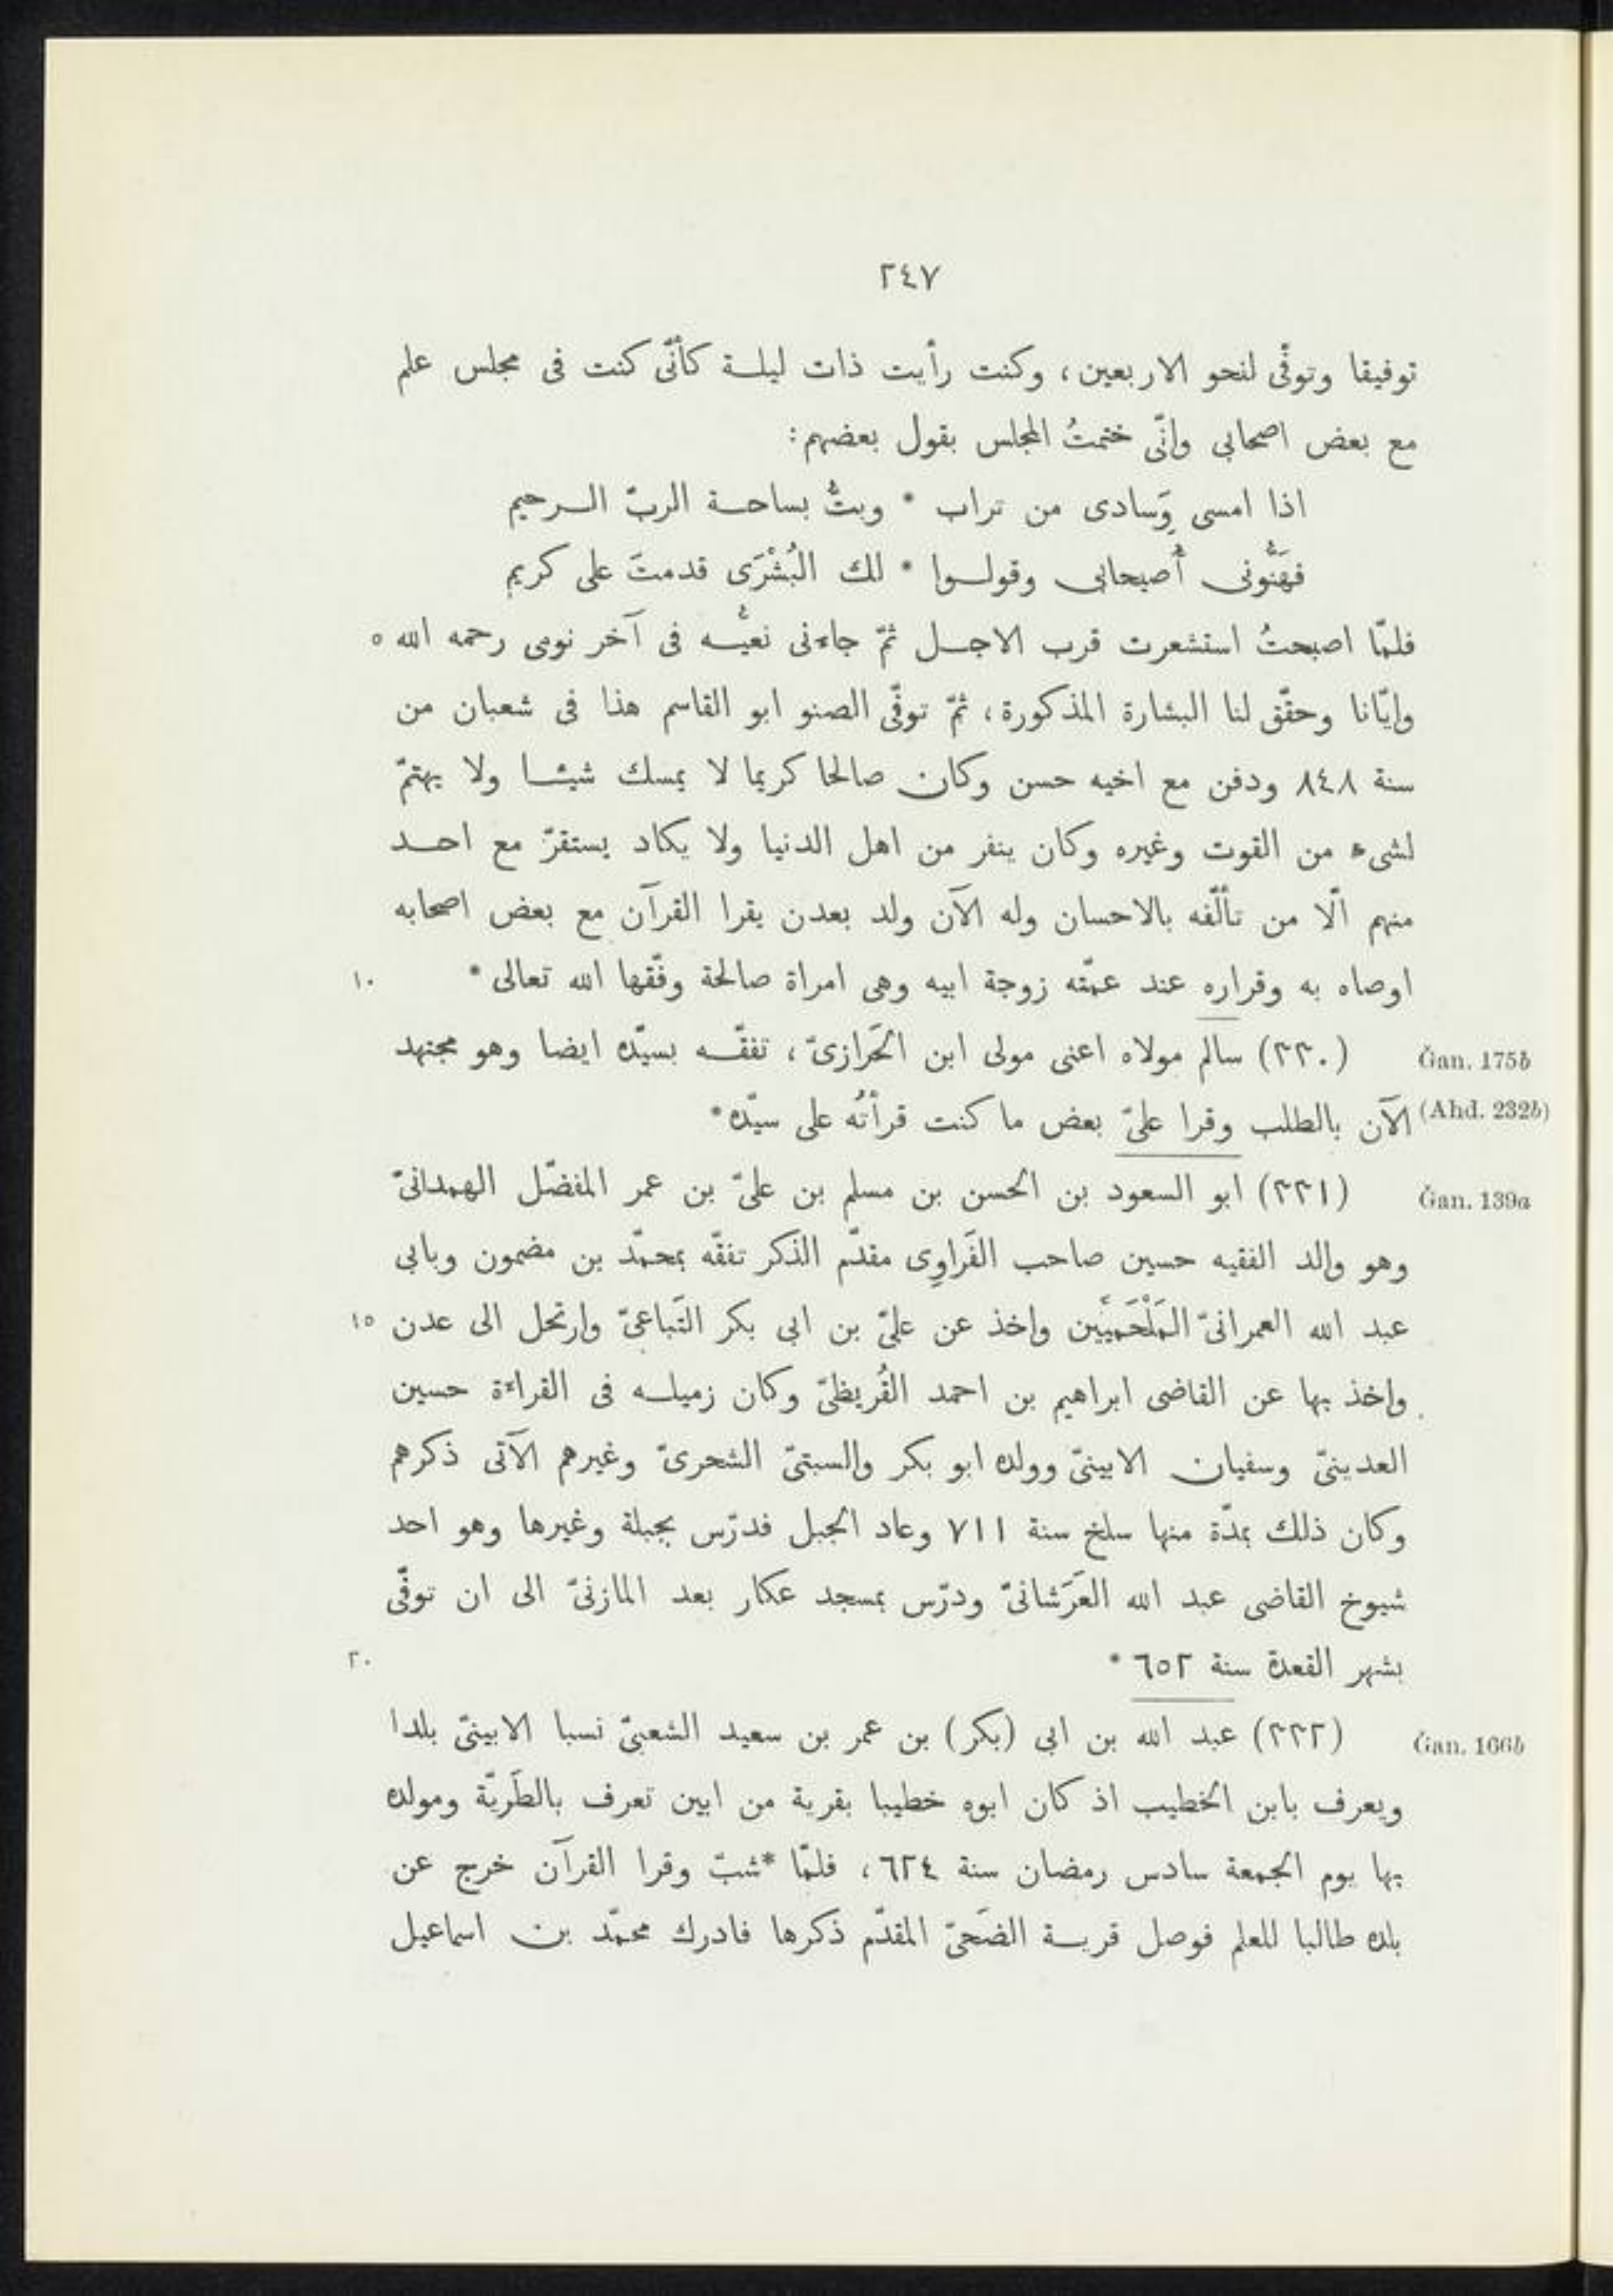 ٢٤٧
توفيقا وتوفّى لنحو الاربعين، وكنت رأيت ذات ليلة كأنّى كنت فى مجلس علم
مع بعض اصحابى وانّى ختمتُ المجلس بقول بعضهم:
اذا امسى وِسَادى من تراب * وبتُّ بساحة الربّ الرحيم
فهَنُّونى أُصيحابى وقولوا * لك البُشْرَى قدمتَ على كريم
فلمّا اصبحتُ استشعرت قرب الاجل ثمّ جاءنى نعيُّه فى آخر نومى رحمه الله ٥
وايّانا وحقّق لنا البشارة المذكورة، ثمّ توفّى الصنو ابو القاسم هذا فى شعبان من
سنة ٨٤٨ ودفن مع اخيه حسن وكان صالحا كريما لا يمسك شيئا ولا يهتمّ
لشىء من القوت وغيره وكان ينفر من اهل الدنيا ولا يكاد يستقرّ مع احد
منهم الّا من تألّفه بالاحسان وله الآن ولد بعدن يقرا القرآن مع بعض اصحابه
اوصاه به وقراره عند عمّته زوجة ابيه وهى امراة صالحة وفّقها الله تعالى * ١٠
Ǧan. 175b (٢٣٠) سالم مولاه اعنى مولى ابن الحَرازىّ، تفقّه بسيّده ايضا وهو مجتهد
(Ahd. 232b) الآن بالطلب وقرا علىّ بعض ما كنت قرأتُه على سيّده *
Ǧan. 139a (٢٣١) ابو السعود بن الحسن بن مسلم بن علىّ بن عمر المفضّل الهمدانىّ
وهو والد الفقيه حسين صاحب الفَراوِى مقدّم الذكر تفقّه بمحمّد بن مضمون وبابى
عبد الله العمرانىّ المَلْحَميّين واخذ عن علىّ بن ابى بكر التَباعىّ وارتحل الى عدن ١٥
واخذ بها عن القاضى ابراهيم بن احمد القُريظىّ وكان زميله فى القراءة حسين
العدينىّ وسفيان الابينىّ وولده ابو بكر والسبتىّ الشحرىّ وغيرهم الآتى ذكرهم
وكان ذلك بمدّة منها سلخ سنة ٧١١ وعاد الجبل فدرّس بجبلة وغيرها وهو احد
شيوخ القاضى عبد الله العَرَشانىّ ودرّس بمسجد عكار بعد المازنىّ الى ان توفّى
بشهر القعدة سنة ٦٥٢ * ٢٠
Ǧan. 166b (٢٣٢) عبد الله بن ابى (بكر) بن عمر بن سعيد الشعبىّ نسبا الابينىّ بلدا
ويعرف بابن الخطيب اذ كان ابوه خطيبا بقرية من ابين تعرف بالطَريّة ومولده
بها يوم الجمعة سادس رمضان سنة ٦٢٤، فلمّا *شبّ وقرا القرآن خرج عن
بلده طالبا للعلم فوصل قرية الضَحىّ المقدّم ذكرها فادرك محمّد بن اسماعيل